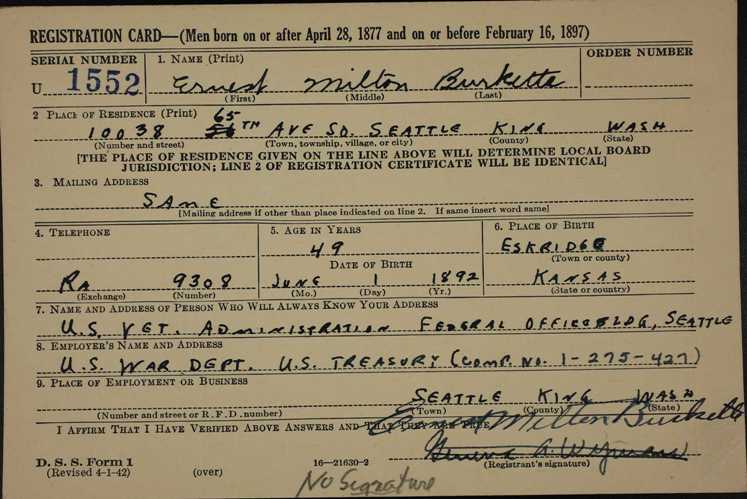 REGISTRATION CARD—(Men born on or after April 28, 1877 and on or before February 16, 1897)
SERIAL NUMBER
U 1552
1. NAME (Print)
Ernest Milton Burkette
(First) (Middle) (Last)
ORDER NUMBER
2 PLACE OF RESIDENCE (Print)
65
10038 56TH AVE SO. SEATTLE KING WASH
(Number and street) (Town, township, village, or city) (County) (State)
[THE PLACE OF RESIDENCE GIVEN ON THE LINE ABOVE WILL DETERMINE LOCAL BOARD
JURISDICTION; LINE 2 OF REGISTRATION CERTIFICATE WILL BE IDENTICAL]
3. MAILING ADDRESS
SAME
[Mailing address if other than place indicated on line 2. If same insert word same]
4. TELEPHONE
RA 9308
(Exchange) (Number)
5. AGE IN YEARS
49
DATE OF BIRTH
JUNE 1 1892
(Mo.) (Day) (Yr.)
6. PLACE OF BIRTH
ESKRIDGE
(Town or county)
KANSAS
(State or country)
7. NAME AND ADDRESS OF PERSON WHO WILL ALWAYS KNOW YOUR ADDRESS
U.S. VET. ADMINISTRATION FEDERAL OFFICE BLDG, SEATTLE
8. EMPLOYER'S NAME AND ADDRESS
U.S. WAR DEPT. U.S. TREASURY (COMP. NO. 1-275-427)
9. PLACE OF EMPLOYMENT OR BUSINESS
SEATTLE KING WASH
(Number and street or R. F. D. number) (Town) (County) (State)
I AFFIRM THAT I HAVE VERIFIED ABOVE ANSWERS AND THAT THEY ARE TRUE.
Ernest Milton Burkette
D. S. S. Form 1
(Revised 4-1-42) (over) 16—21630-2 (Registrant's signature)
No Signature